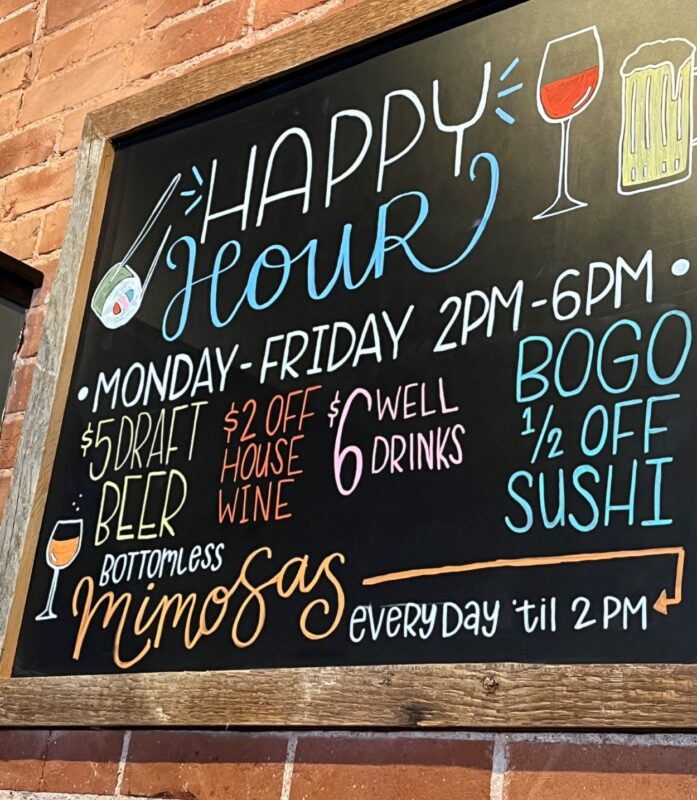 HAPPY
Hour
• MONDAY-FRIDAY 2PM-6PM •
$5 DRAFT
BEER
$2 OFF
HOUSE
WINE
$6 WELL
DRINKS
BOGO
1/2 OFF
SUSHI
BOTTOMLESS
mimosas
everyday 'til 2 PM